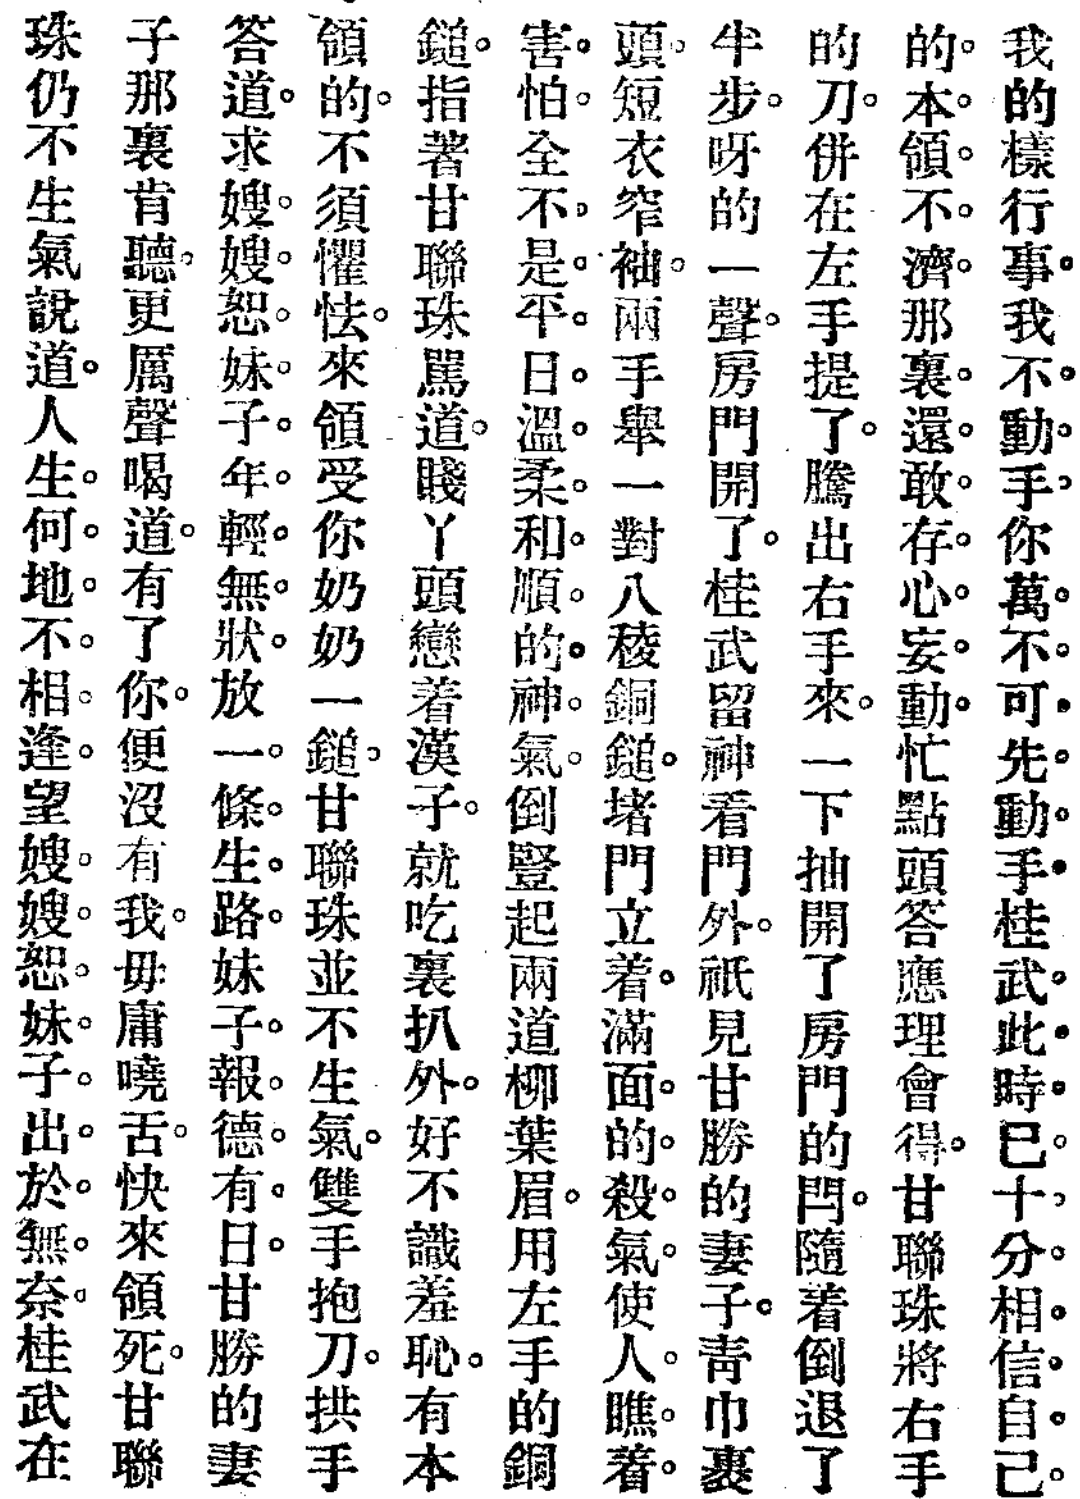 我的樣行事我不動手你萬不可先動手桂武此時已十分相信自己
的本領不濟那裏還敢存心妄動忙點頭答應理會得甘聯珠將右手
的刀併在左手提了騰出右手來一下抽開了房門的閂隨着倒退了
半步呀的一聲房門開了桂武留神看門外祇見甘勝的妻子靑巾裹
頭短衣窄袖兩手舉一對八稜銅鎚堵門立着滿面的殺氣使人瞧着
害怕全不是平日溫柔和順的神氣倒豎起兩道柳葉眉用左手的銅
鎚指著甘聯珠駡道賤丫頭戀着漢子就吃裏扒外好不識羞恥有本
領的不須懼怯來領受你奶奶一鎚甘聯珠並不生氣雙手抱刀拱手
答道求嫂嫂恕妹子年輕無狀放一條生路妹子報德有日甘勝的妻
子那裏肯聽更厲聲喝道有了你便沒有我毋庸嘵舌快來領死甘聯
珠仍不生氣說道人生何地不相逢望嫂嫂恕妹子出於無奈桂武在